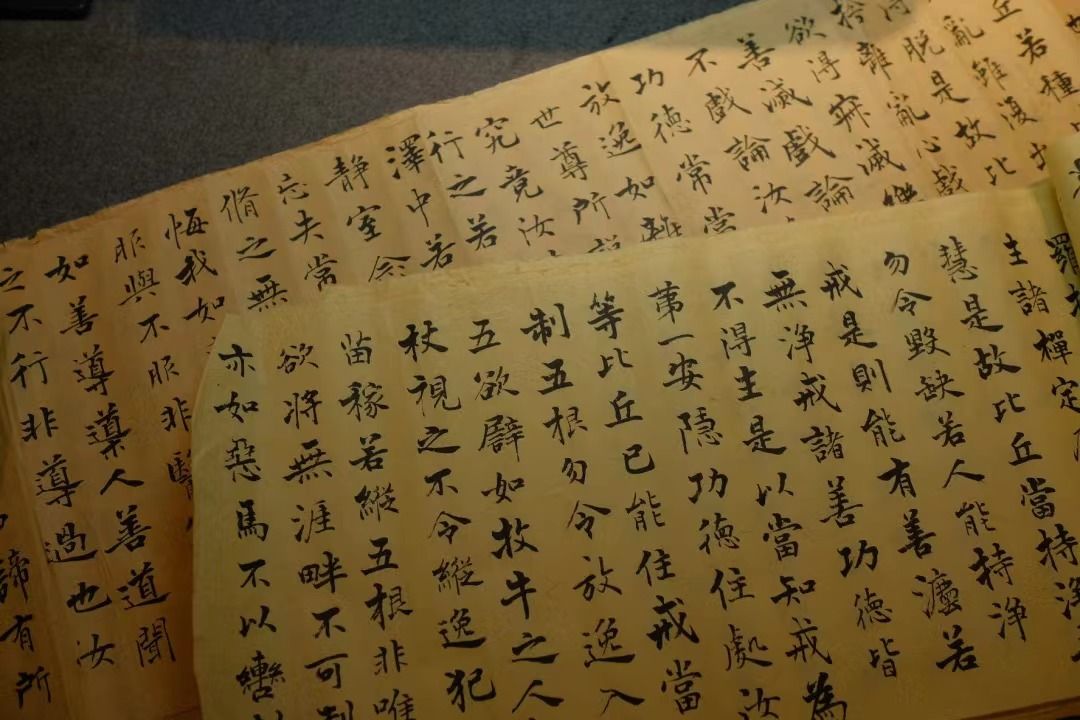 世
丘若種
亂雖復出
脫是故比
捨離亂心戲
欲得寂滅樂
善滅戲論
不戲論汝
功德常當
放逸如離
世尊所說
究竟汝
行之若
澤中若
靜室念
忘失常
脩之無
悔我如
服與不服非醫
如善導導人善道聞
之不行非導過也汝
諦有所
羅
生諸禪定
慧是故比丘當持淨
勿令毀缺若人能持淨
戒是則能有善灋若
無淨戒諸善功德皆
不得生是以當知戒為
第一安隱功德住處汝
等比丘已能住戒當
制五根勿令放逸入
五欲譬如牧牛之人
杖視之不令縱逸犯
苗稼若縱五根非唯
欲將無涯畔不可制
亦如惡馬不以轡